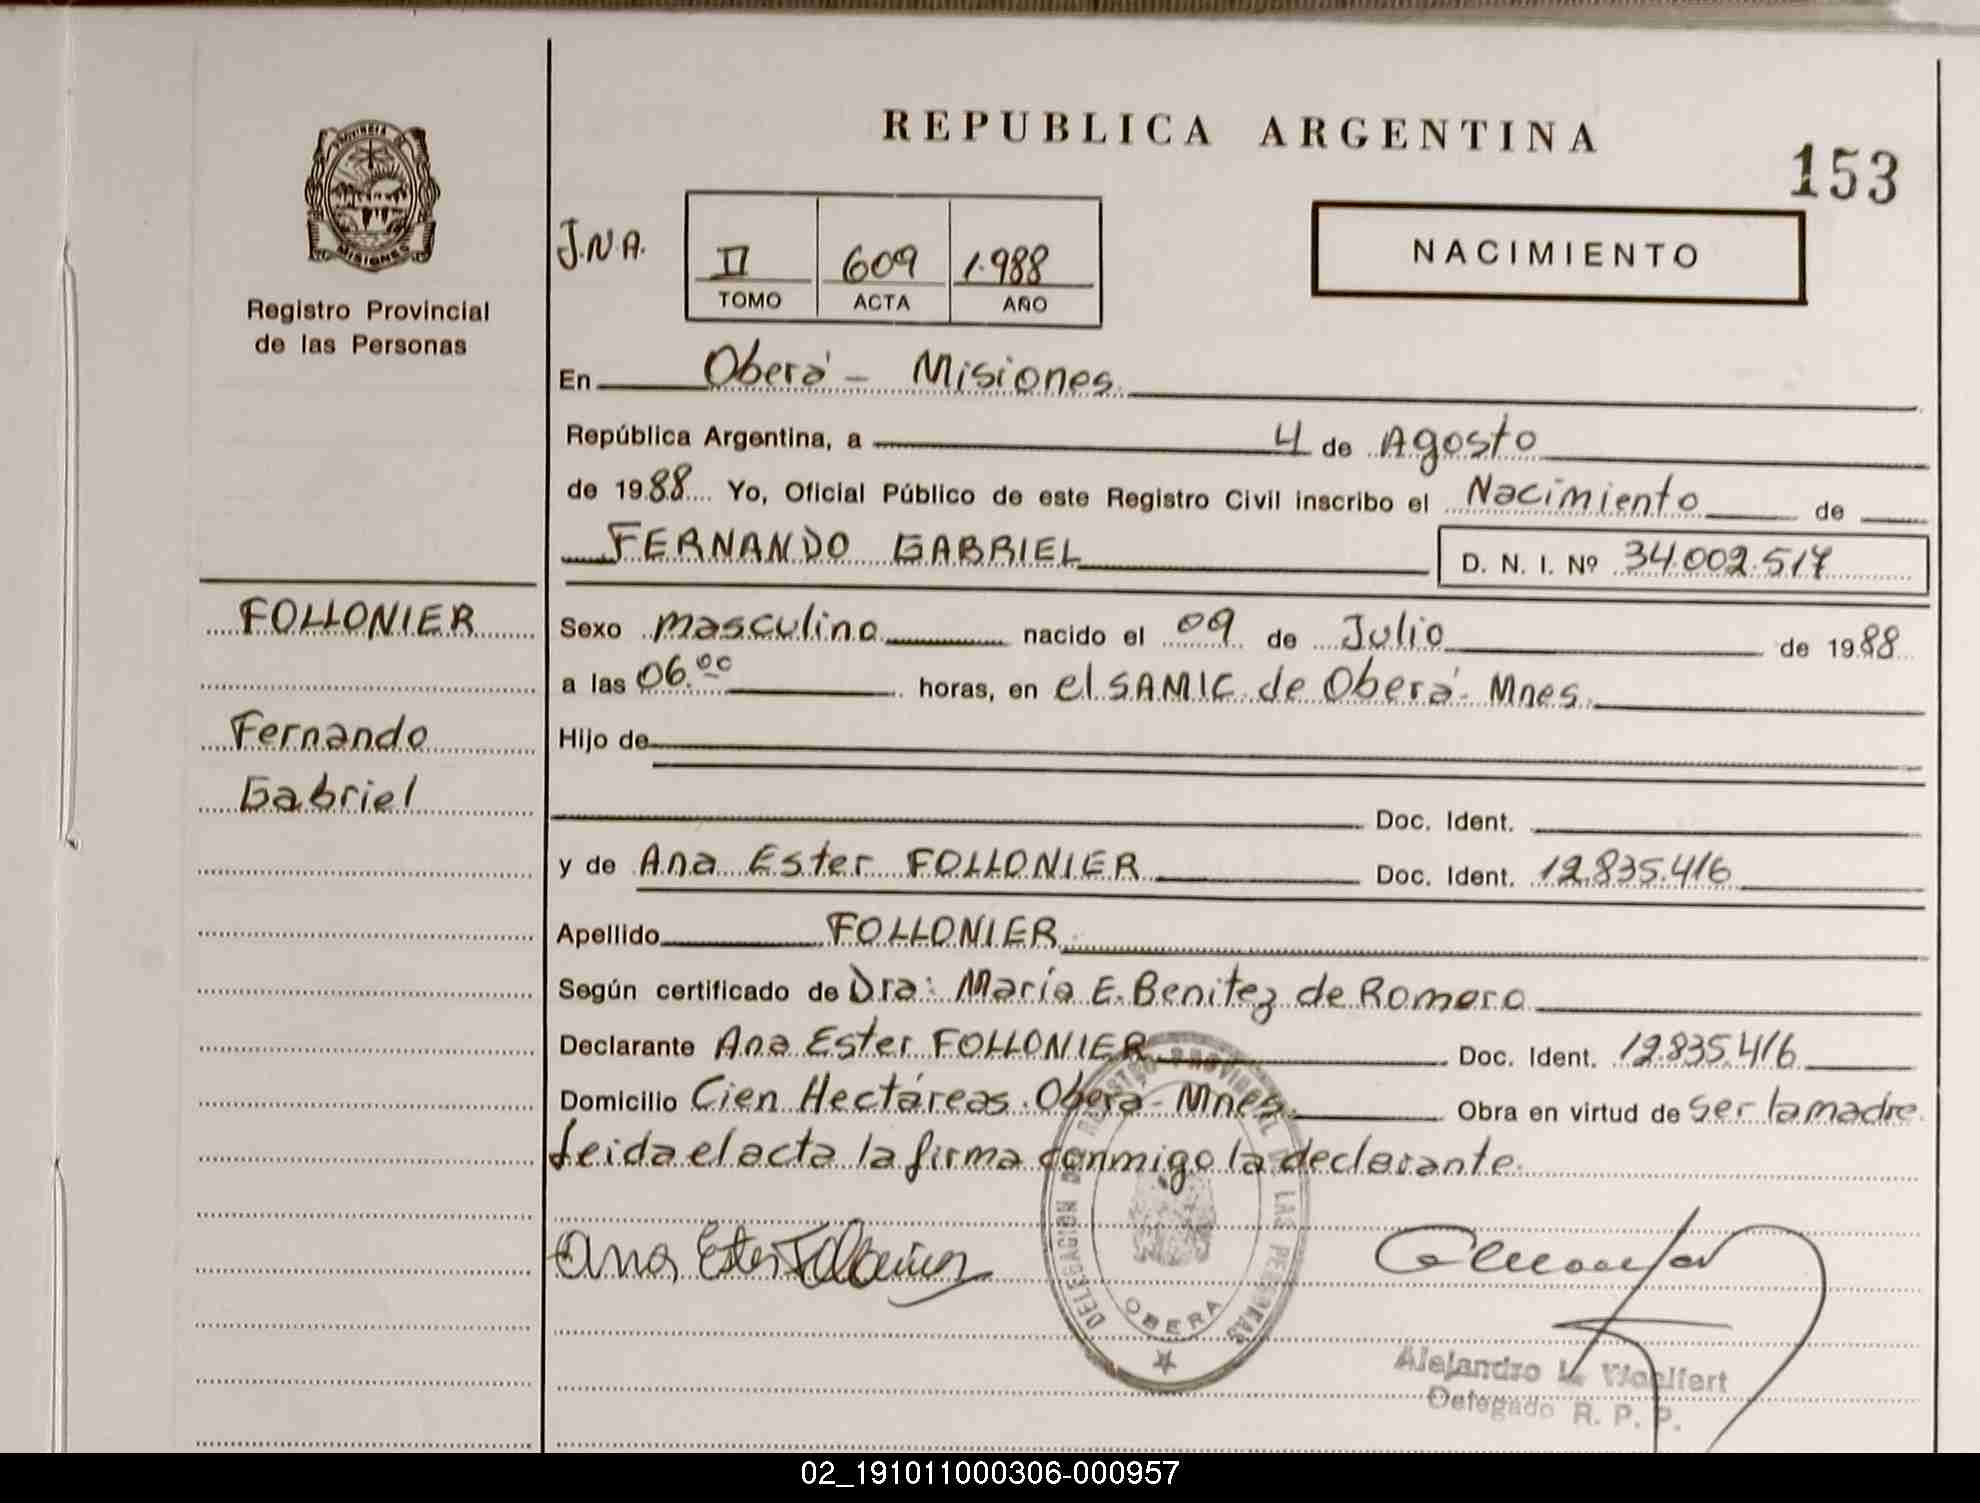 REPUBLICA ARGENTINA
153
MISIONES
Registro Provincial
de las Personas
J.N.A.
II 609 1.988
TOMO ACTA AÑO
NACIMIENTO
En Oberá - Misiones
República Argentina, a 4 de Agosto
de 1988 Yo, Oficial Público de este Registro Civil inscribo el Nacimiento de
FERNANDO GABRIEL D. N. I. Nº 34.002.517
FOLLONIER
Fernando
Gabriel
Sexo masculino nacido el 09 de Julio de 1988
a las 06.00 horas, en el SAMIC de Oberá - Mnes.
Hijo de
Doc. Ident.
y de Ana Ester FOLLONIER Doc. Ident. 12.835.416
Apellido FOLLONIER
Según certificado de Dra: María E. Benitez de Romero
Declarante Ana Ester FOLLONIER Doc. Ident. 12.835.416
Domicilio Cien Hectáreas. Oberá - Mnes. Obra en virtud de ser la madre.
Leida el acta la firma conmigo la declarante.
Ana Ester Follonier
DELEGACION DEL REGISTRO PROVINCIAL DE LAS PERSONAS
OBERA
Alejandro L.
Delegado R. P. P.
02_191011000306-000957